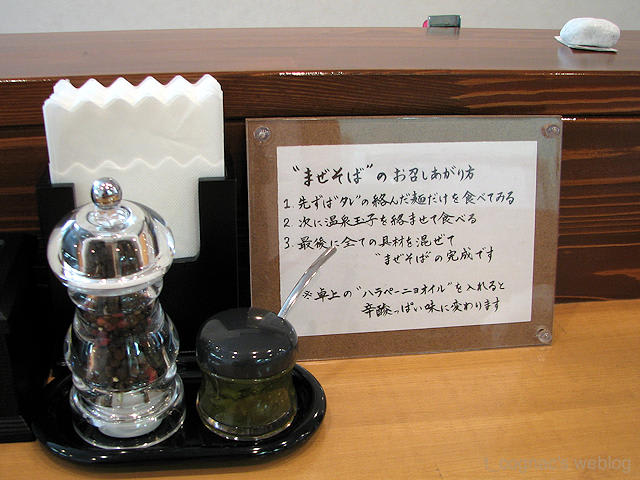 "まぜそば"のお召しあがり方
1. 先ずば"タレ"の絡んだ麺だけを食べてみる
2. 次に温泉玉子を絡ませて食べる
3. 最後に全ての具材を混ぜて
"まぜそば"の完成です
※卓上の"ハラペーニョオイル"を入れると
辛酸っぱい味に変わります
weblog